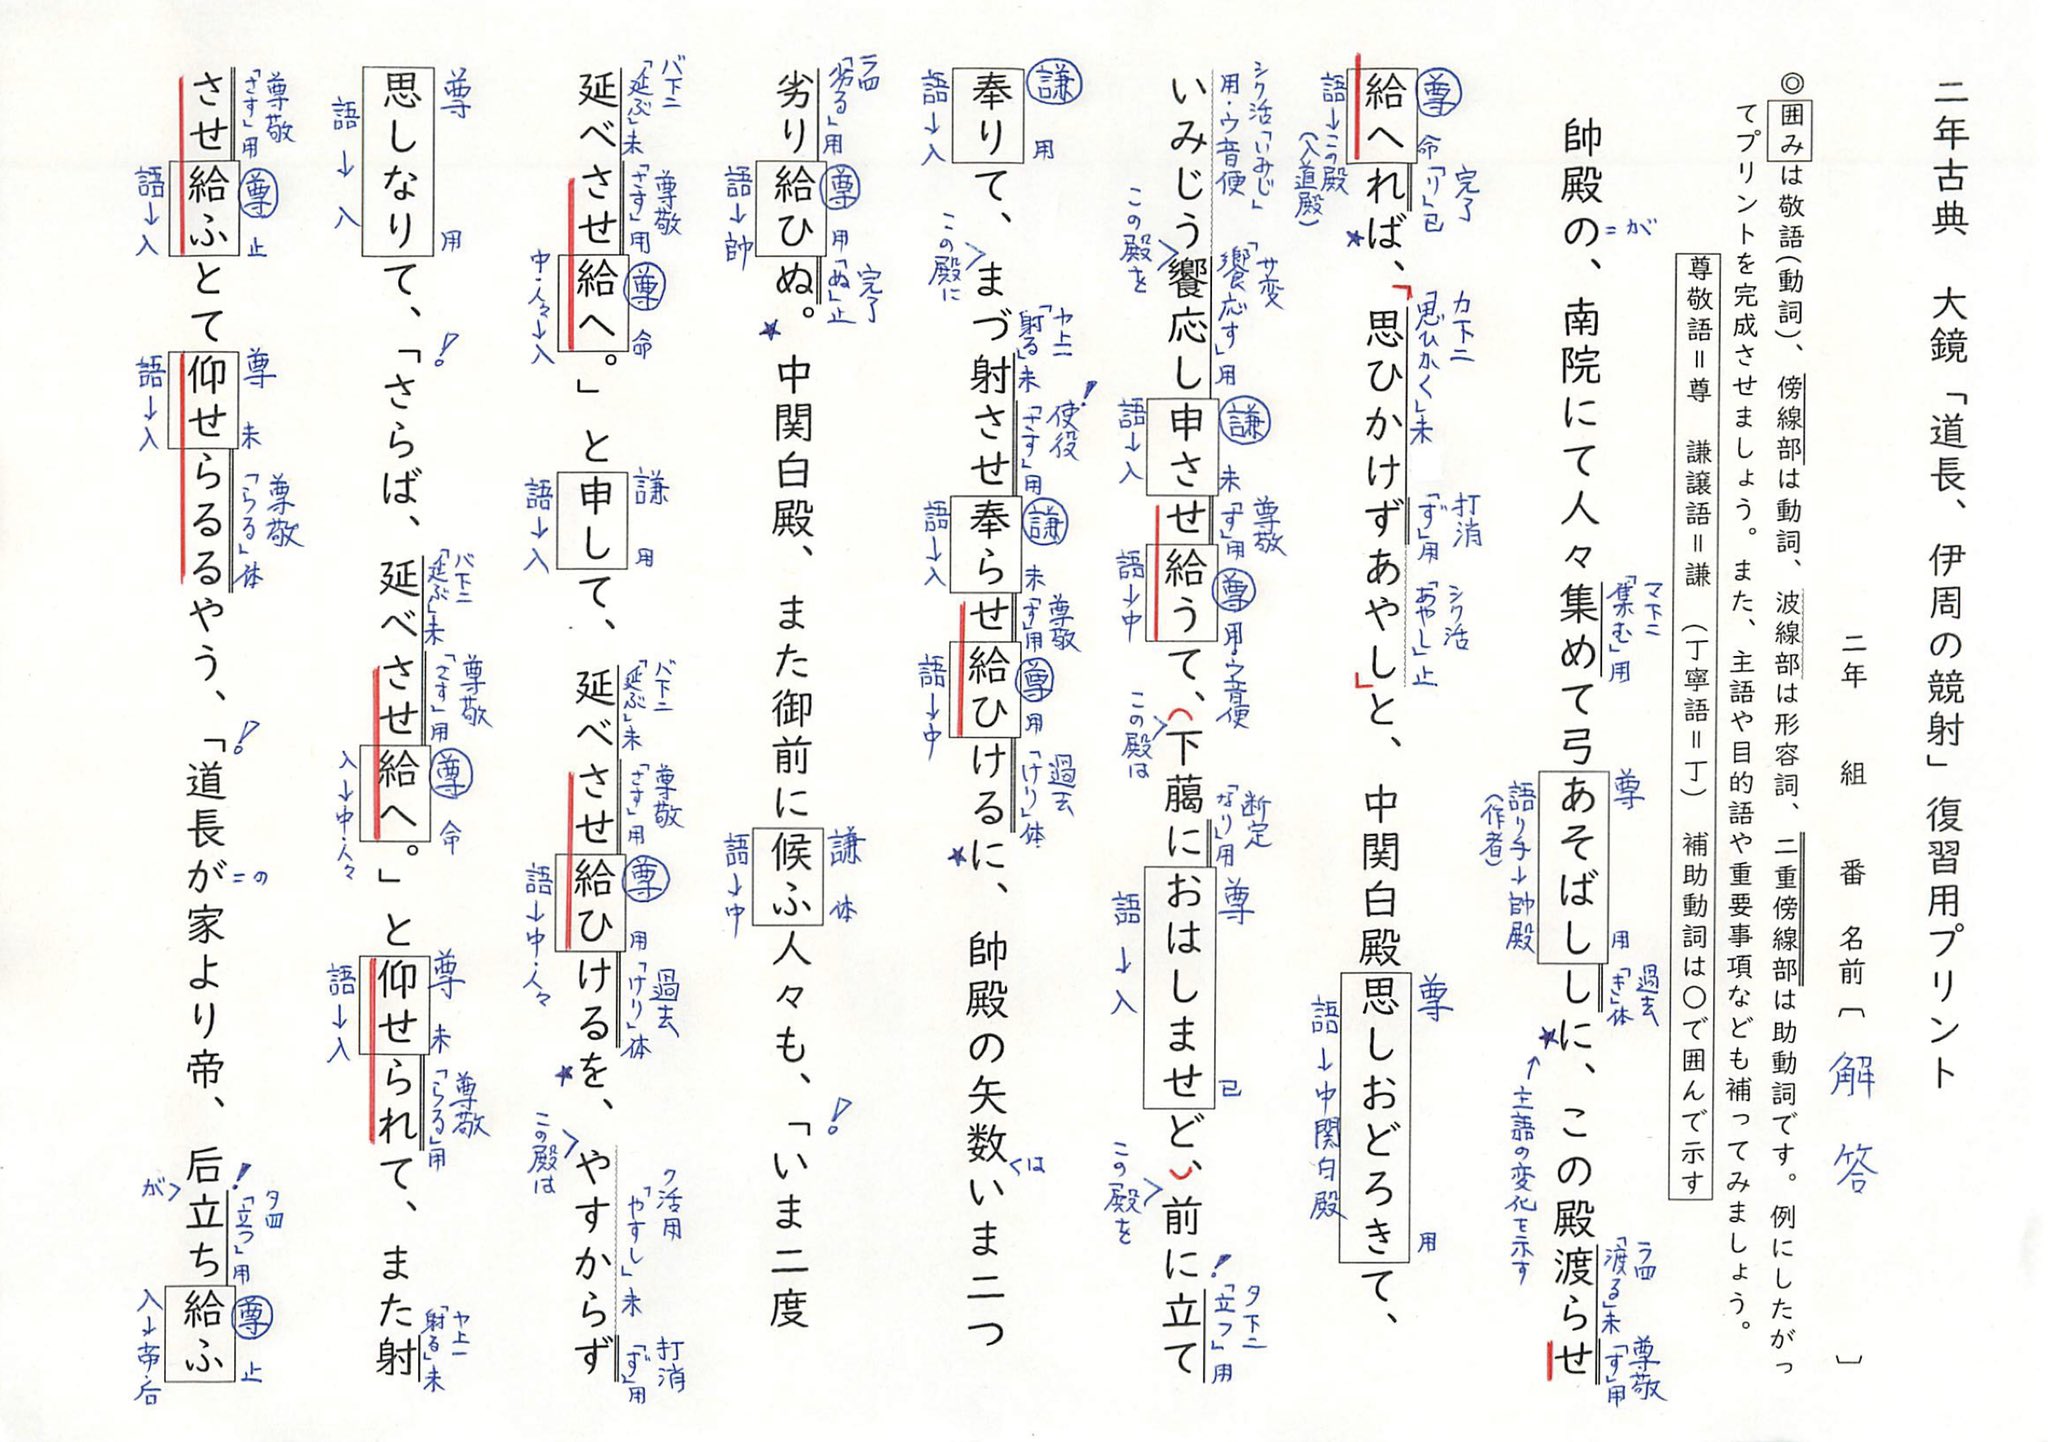 二年古典　大鏡「道長、伊周の競射」復習用プリント
二年　組　番　名前〔解答〕
◎囲みは敬語（動詞）、傍線部は動詞、波線部は形容詞、二重傍線部は助動詞です。例にしたがっ
てプリントを完成させましょう。また、主語や目的語や重要事項なども補ってみましょう。
尊敬語＝尊　謙譲語＝謙　（丁寧語＝丁）　補助動詞は〇で囲んで示す
＝が
マ下二「集む」用
尊　用
過去「き」体
ラ四「渡る」未
尊敬「す」用
帥殿の、南院にて人々集めて弓あそばししに、この殿渡らせ
語り手→帥殿
（作者）
★
↑主語の変化を示す
尊　命
完了「り」已
カ下二「思ひかく」未
打消「ず」用
シク活「あやし」止
尊　用
給へれば、「思ひかけずあやし」と、中関白殿思しおどろきて、
語→この殿
（入道殿）
★
語→中関白殿
シク活「いみじ」
用・ウ音便
サ変「饗応す」用
謙　未
尊敬「す」用
尊　用・ウ音便
断定「なり」用
尊　已
！
タ下二「立つ」用
いみじう饗応し申させ給うて、（下﨟におはしませど、）前に立て
この殿を
語→入
語→中
この殿は
語→入
この殿を
謙　用
ヤ上一「射る」未
！
使役「さす」用
謙　未
尊敬「す」用
尊　用
過去「けり」体
は
奉りて、まづ射させ奉らせ給ひけるに、帥殿の矢数いま二つ
語→入
この殿に
語→入
語→中
★
ラ四「劣る」用
尊　用
完了「ぬ」止
謙　体
！
劣り給ひぬ。中関白殿、また御前に候ふ人々も、「いま二度
語→帥
★
語→中
バ下二「延ぶ」未
尊敬「さす」用
尊　命
謙　用
バ下二「延ぶ」未
尊敬「さす」用
尊　用
過去「けり」体
ク活用「やすし」未
打消「ず」用
延べさせ給へ。」と申して、延べさせ給ひけるを、やすからず
中・人々→入
語→入
語→中・人々
★
この殿は
尊　用
！
バ下二「延ぶ」未
尊敬「さす」用
尊　命
尊　未
尊敬「らる」用
ヤ上一「射る」未
思しなりて、「さらば、延べさせ給へ。」と仰せられて、また射
語→入
入→中・人々
語→入
尊敬「さす」用
尊　止
尊　未
尊敬「らる」体
！
＝の
！
タ四「立つ」用
尊　止
させ給ふとて仰せらるるやう、「道長が家より帝、后立ち給ふ
語→入
語→入
が
入→帝・后